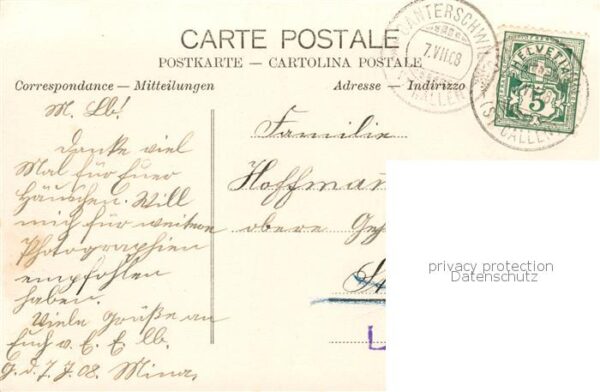 CARTE POSTALE
POSTKARTE — CARTOLINA POSTALE
Correspondance — Mitteilungen
Adresse — Indirizzo
GANTERSCHWIL
7.VII.08
(ST. GALLEN)
HELVETIA
5
(ST. GALLEN)
M. Lb!
Danke viel
Mal für Euer
Häuschen. Will
mich für weitere
Photographien
empfohlen
haben.
Viele Grüße an
Euch v. E. E. lb.
G. d. 7. 7. 08. Mina.
Familie
Hoffman
obere
St
privacy protection
Datenschutz